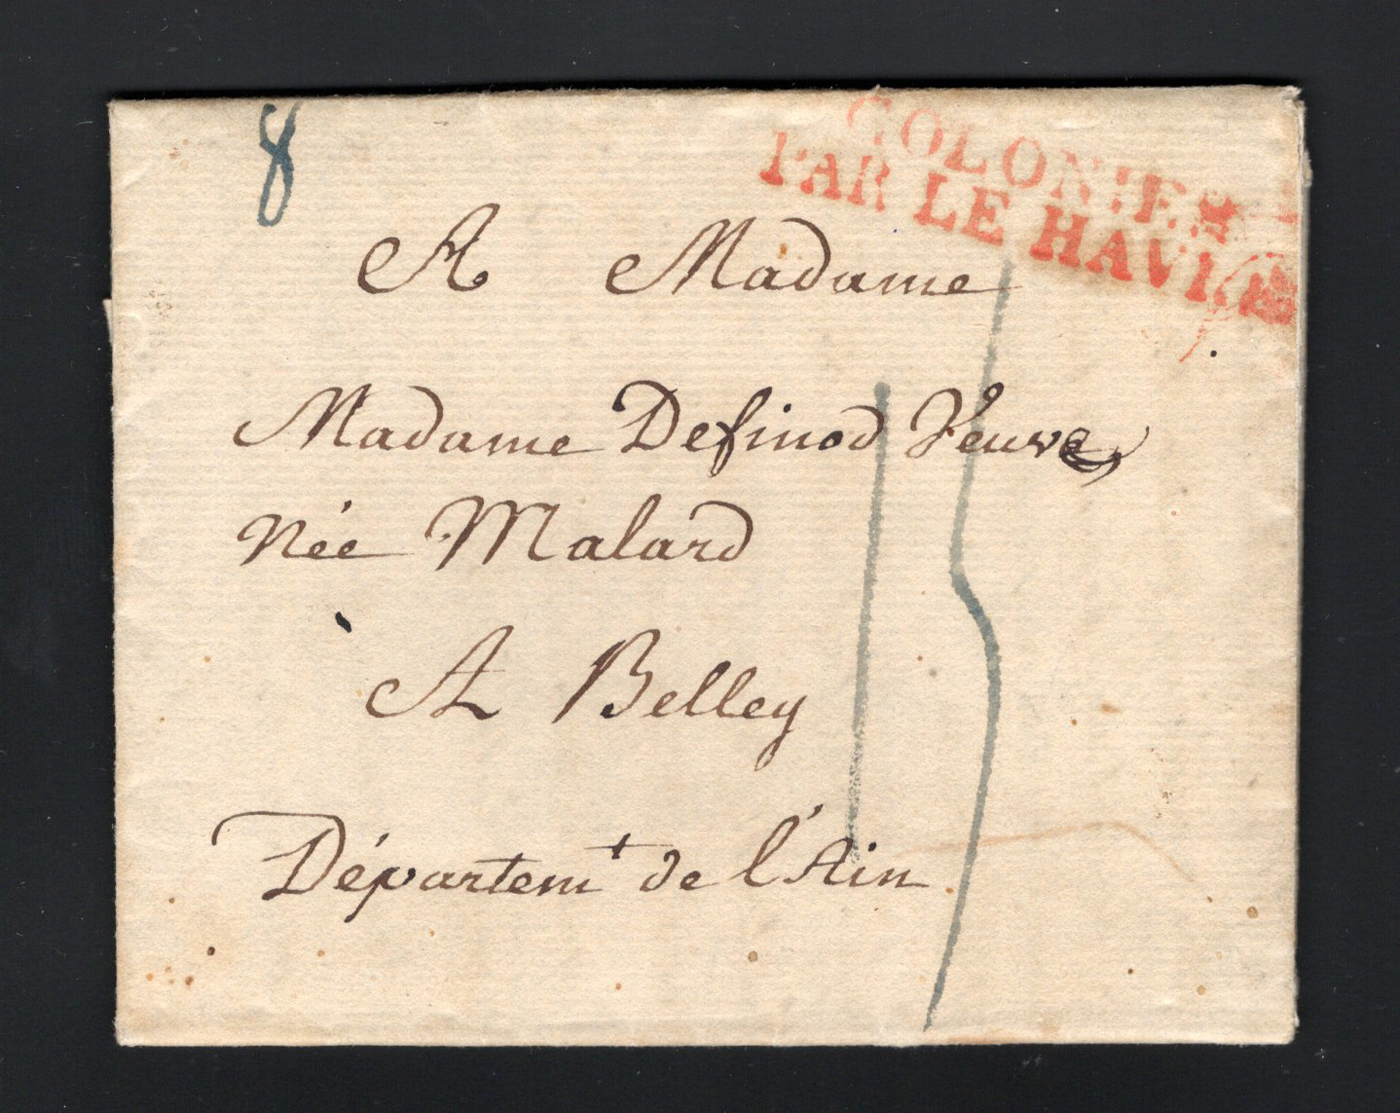 8
COLONIES
PAR LE HAVRE
A Madame
Madame Definod Veuve,
Née Malard
A Belley
Départemt de l'Ain
15